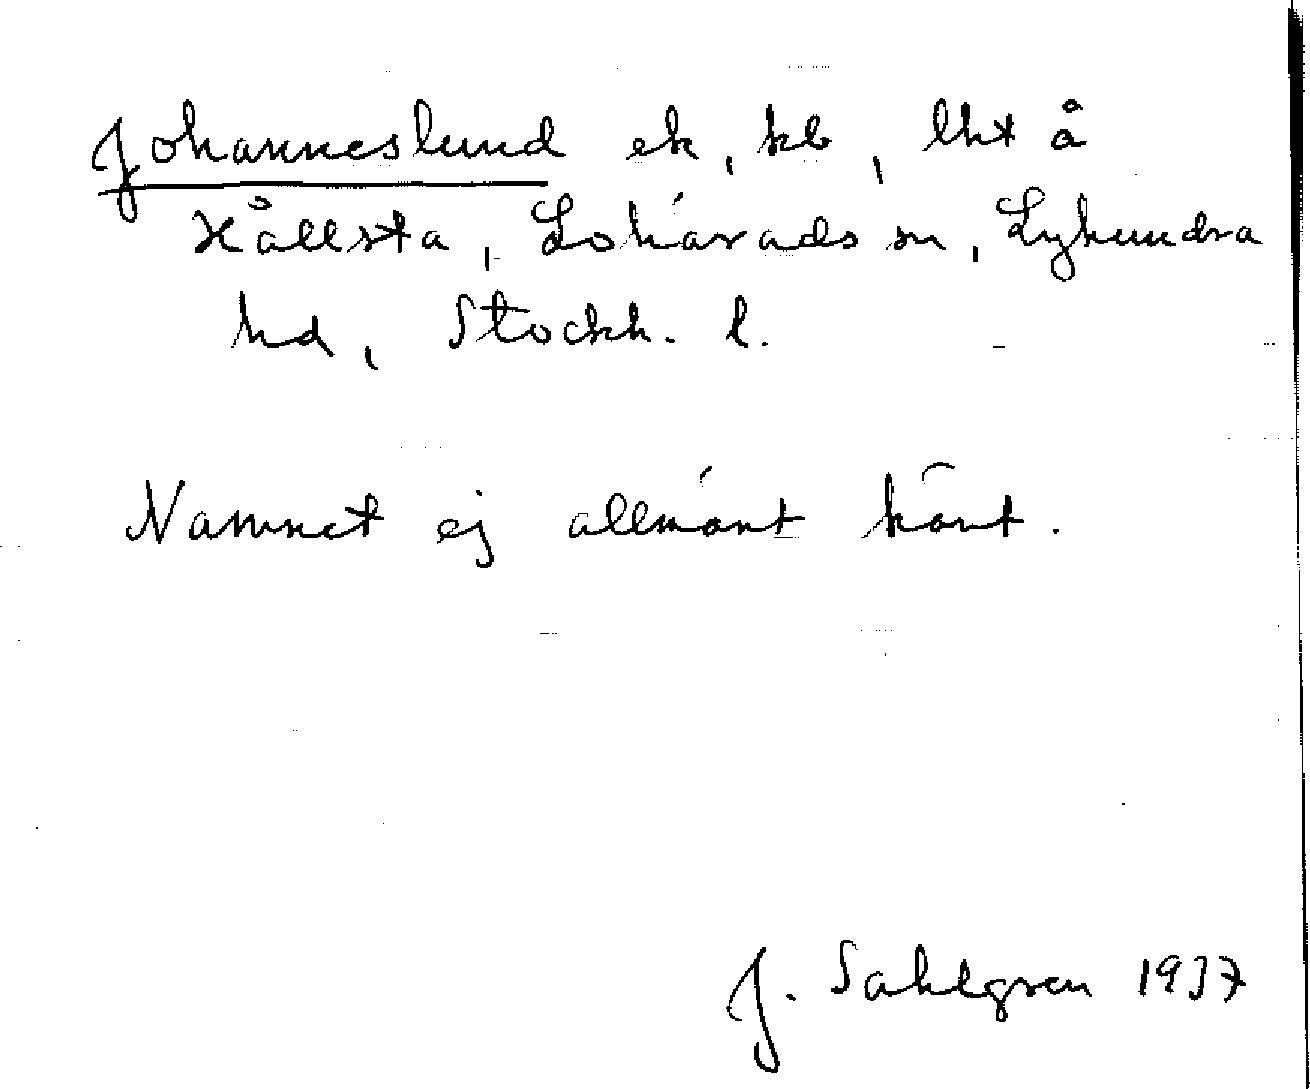 Johanneslund ek, kb, lht å
Kållsta, Lohärads sn, Lyhundra
hd, Stockh. l.
Namnet ej allmänt känt.
J. Sahlgren 1937